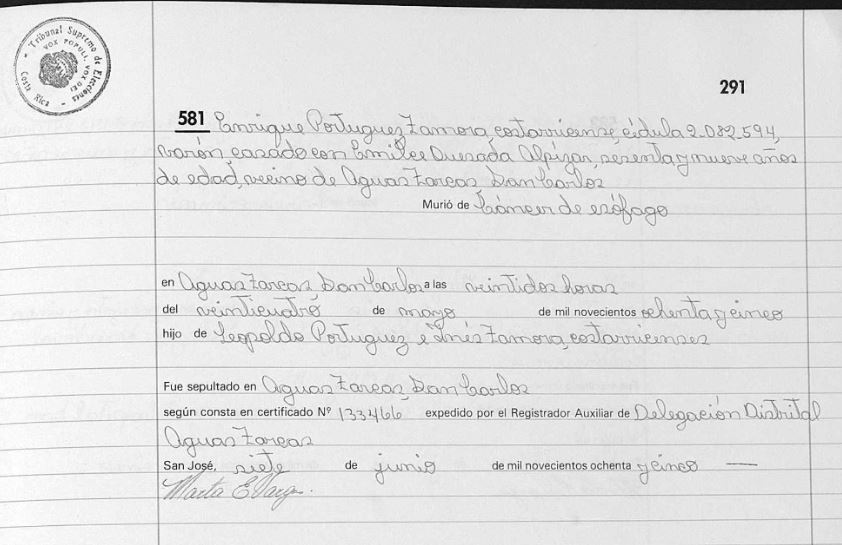 Tribunal Supremo de Elecciones - Costa Rica -
VOX POPULI, VOX DEI
291
581 Enrique Portuguez Zamora, costarricense, cédula 2-082-594,
varón, casado con Emilce Quesada Alpízar, sesenta y nueve años
de edad, vecino de Aguas Zarcas San Carlos
Murió de Cáncer de esófago
en Aguas Zarcas San Carlos a las veintidos horas
del veinticuatro de mayo de mil novecientos ochenta y cinco
hijo de Leopoldo Portuguez e Inés Zamora, costarricenses
Fue sepultado en Aguas Zarcas, San Carlos
según consta en certificado Nº 133466 expedido por el Registrador Auxiliar de Delegación Distrital
Aguas Zarcas
San José, siete de junio de mil novecientos ochenta y cinco —
Marta E Vargas.